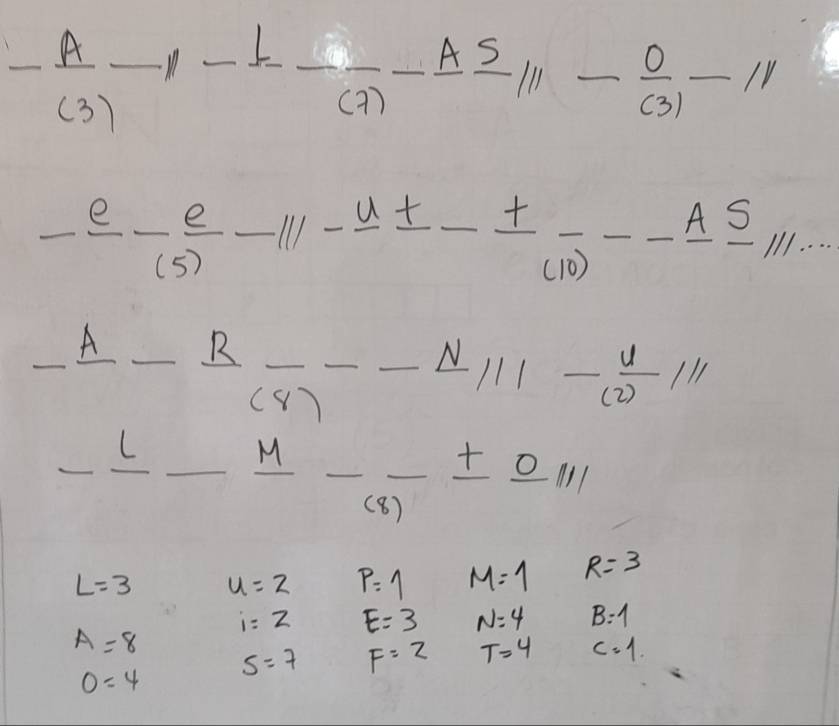 _ A _ /// _ L _ _ _ A S /// _ O _ ///
(3) (7) (3)
_ e _ e _ /// _ u t _ t _ _ _ A S ///....
(5) (10)
_ A _ R _ _ _ N /// _ u ///
(8) (2)
_ L _ M _ _ t o ////
(8)
L=3 U=2 P=1 M=1 R=3
A=8 i=2 E=3 N=4 B=1
O=4 S=7 F=2 T=4 C=1.